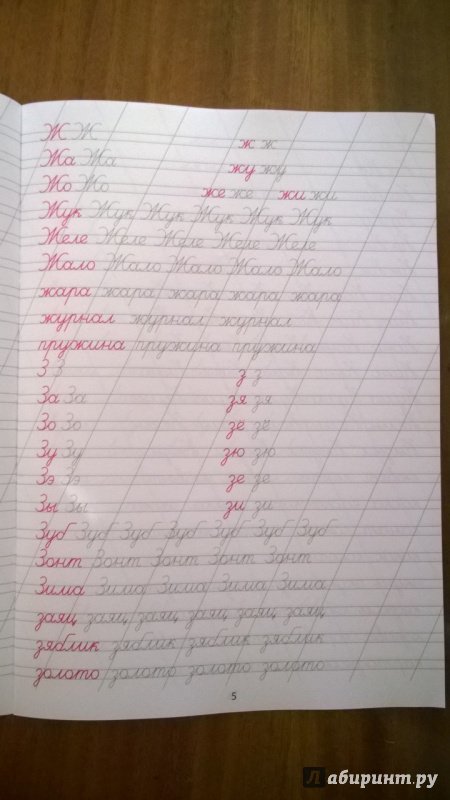 Ж Ж ж ж
Жа Жа жу жу
Жо Жо же же жи жи
Жук Жук Жук Жук Жук Жук
Желе Желе Желе Желе Желе
Жало Жало Жало Жало Жало
жара жара жара жара жара
журнал журнал журнал
пружина пружина пружина
З З з з
За За зя зя
Зо Зо зё зё
Зу Зу зю зю
Зэ Зэ зе зе
Зы Зы зи зи
Зуб Зуб Зуб Зуб Зуб Зуб Зуб
Зонт Зонт Зонт Зонт Зонт
Зима Зима Зима Зима Зима
заяц заяц заяц заяц заяц заяц
зяблик зяблик зяблик зяблик
золото золото золото золото
5
Лабиринт.ру